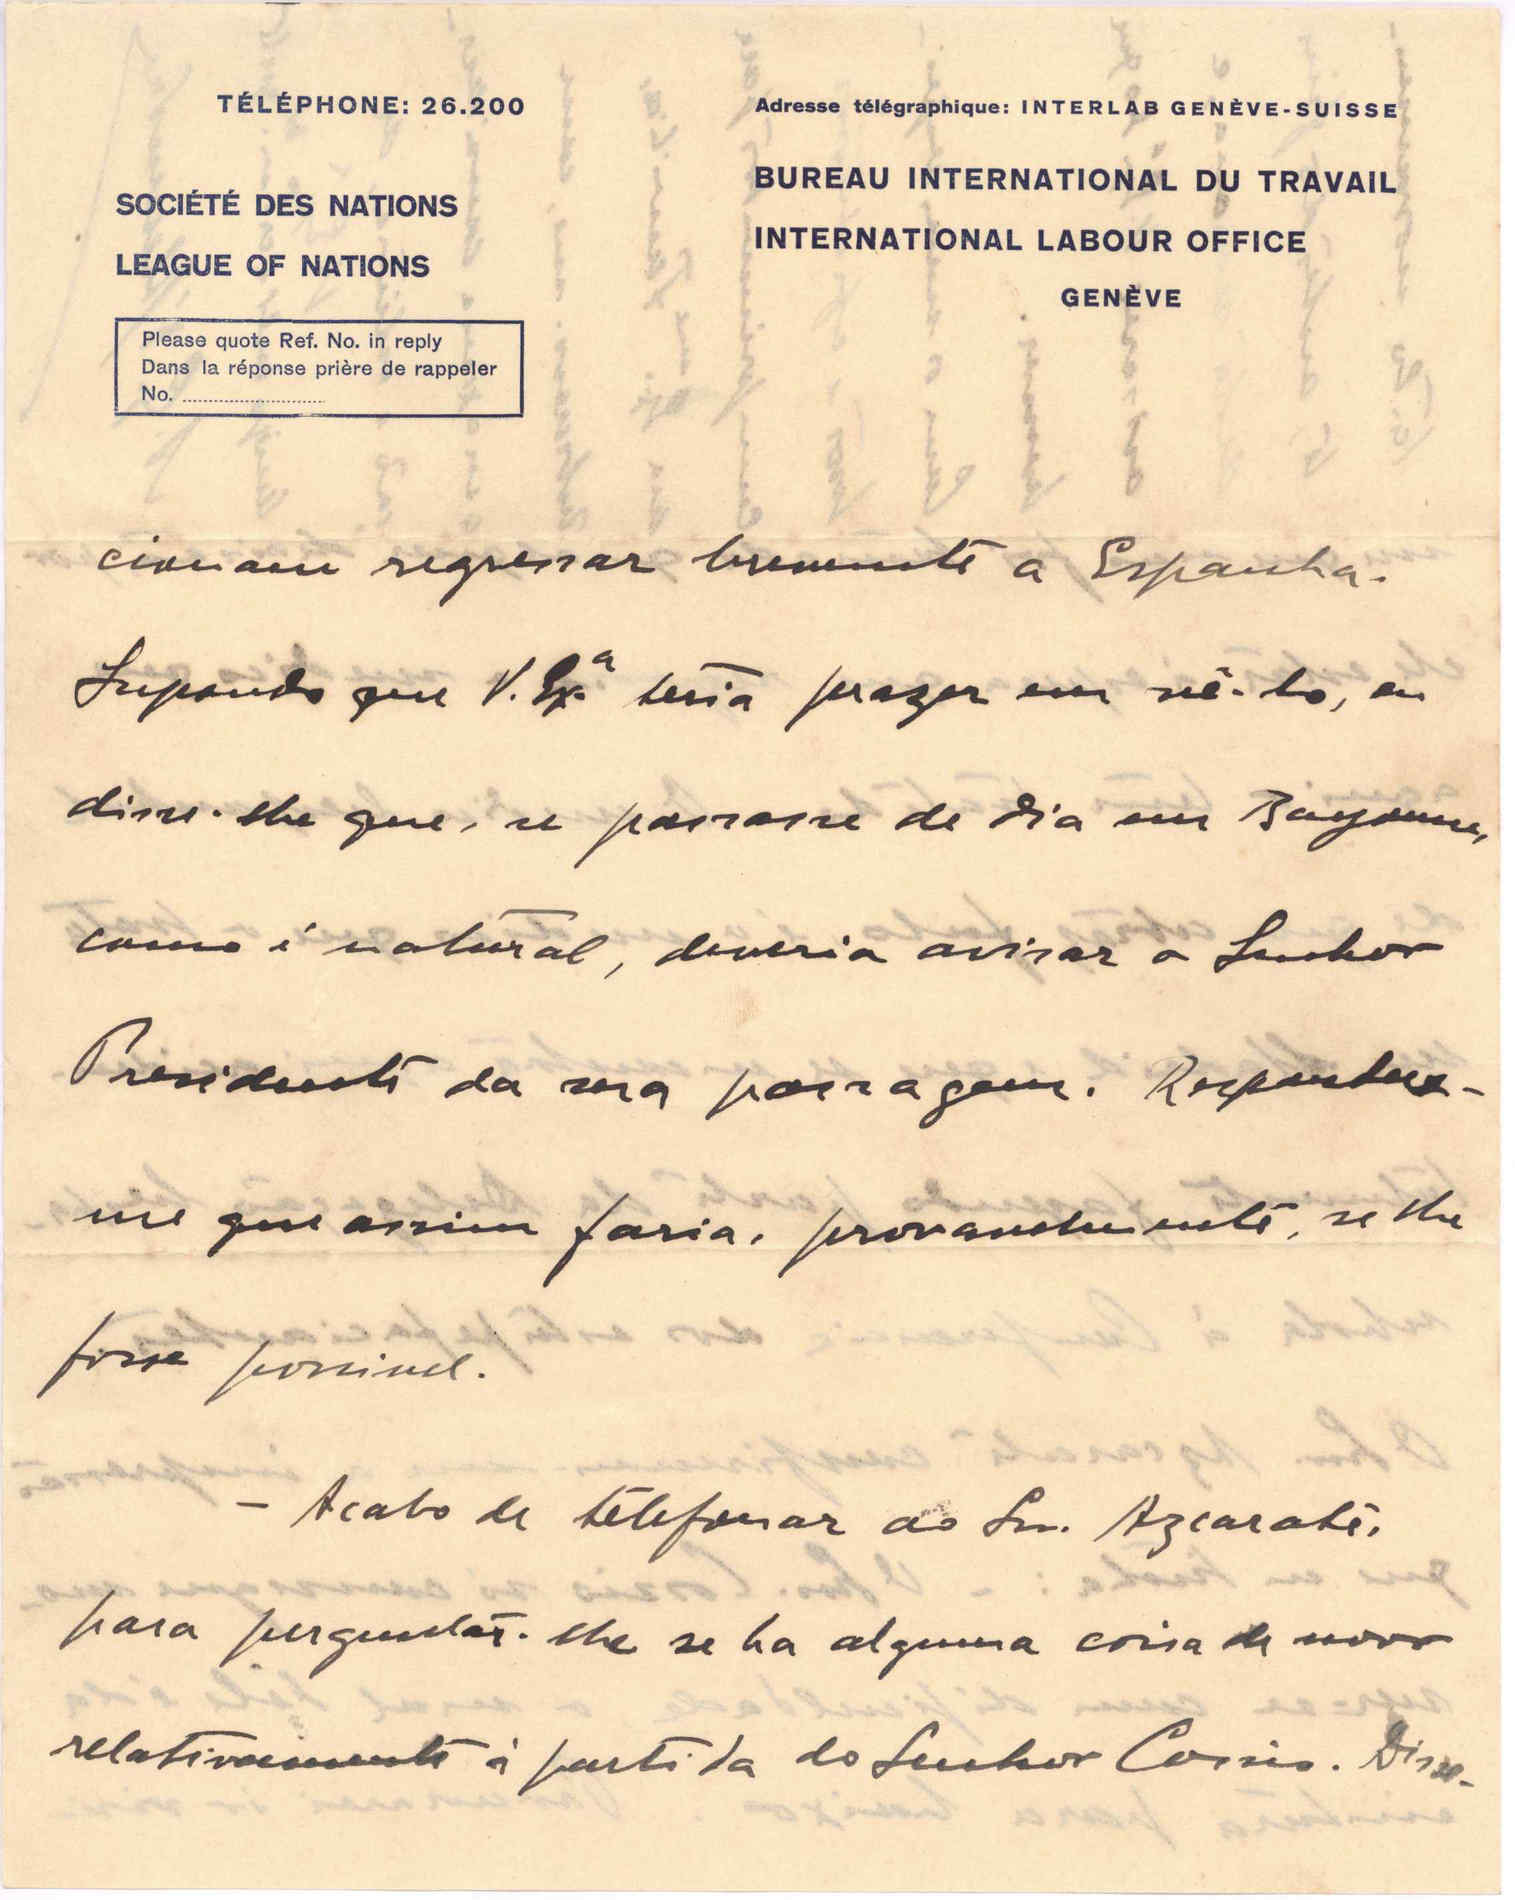 TÉLÉPHONE: 26.200
SOCIÉTÉ DES NATIONS
LEAGUE OF NATIONS
Please quote Ref. No. in reply
Dans la réponse prière de rappeler
No. ........................
Adresse télégraphique: INTERLAB GENÈVE-SUISSE
BUREAU INTERNATIONAL DU TRAVAIL
INTERNATIONAL LABOUR OFFICE
GENÈVE
cionam regressar brevemente a Espanha.
Supondo que V. Ex.ª teria prazer em vê-lo, eu
disse-lhe que, se passasse de dia em Bayonne,
como é natural, deveria avisar o Senhor
Presidente da sua passagem. Respondeu-
me que assim faria, provavelmente, se lhe
fosse possivel.
- Acabo de telefonar ao Sr. Azcarate,
para perguntar-lhe se ha alguma coisa de novo
relativamente à partida do Senhor Cossio. Disse-